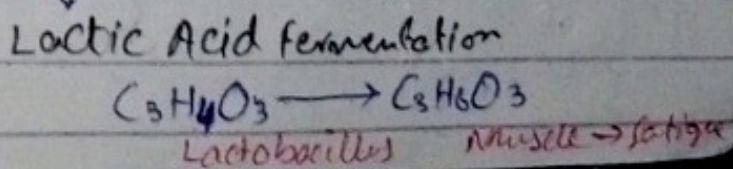 Lactic Acid fermentation
C3H4O3 → C3H6O3
Lactobacillus Muscle → fatigue